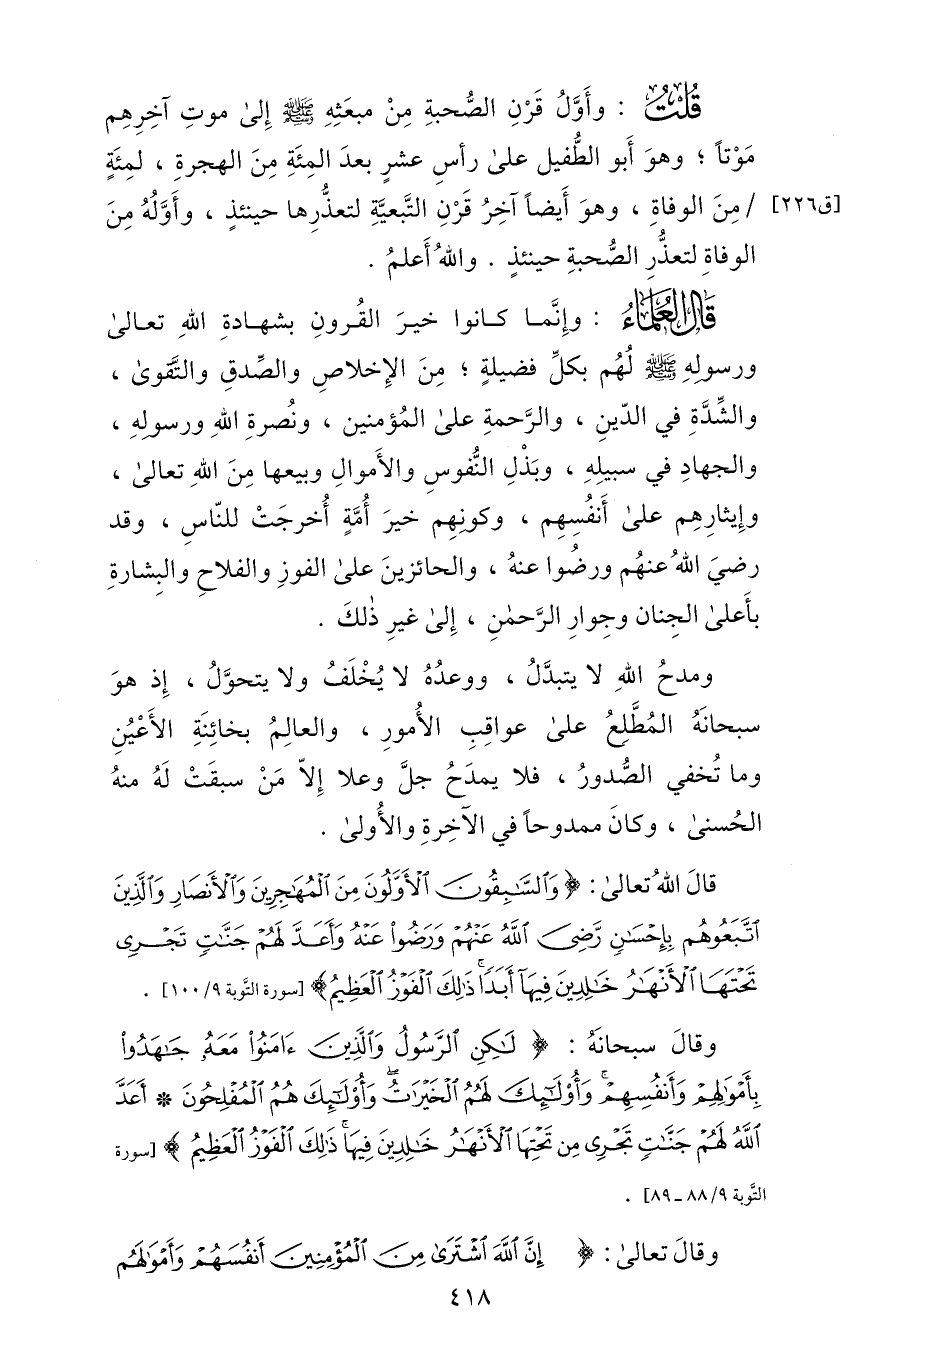 قُلْتُ : وأَوَّلُ قَرْنِ الصُّحبةِ مِنْ مبعَثِهِ ﷺ إِلىٰ موتِ آخِرِهِم
مَوْتاً ؛ وهوَ أَبو الطُّفيل علىٰ رأسِ عشرٍ بعدَ المِئَةِ مِنَ الهجرةِ ، لمِئَةٍ
[ق٢٢٦] / مِنَ الوفاةِ ، وهوَ أَيضاً آخِرُ قَرْنِ التَّبعيَّةِ لتعذُّرِها حينئذٍ ، وأَوَّلُهُ مِنَ
الوفاةِ لتعذُّرِ الصُّحبةِ حينئذٍ . واللهُ أَعلمُ .
قَالَ العُلَمَاءُ : وإِنَّما كانوا خيرَ القُرونِ بشهادةِ اللهِ تعالىٰ
ورسولِهِ ﷺ لَهُم بكلِّ فضيلةٍ ؛ مِنَ الإِخلاصِ والصِّدقِ والتَّقوىٰ ،
والشِّدَّةِ في الدّينِ ، والرَّحمةِ علىٰ المُؤمنين ، ونُصرةِ اللهِ ورسولِهِ ،
والجهادِ في سبيلِهِ ، وبَذْلِ النُّفوسِ والأَموالِ وبيعها مِنَ اللهِ تعالىٰ ،
وإِيثارِهِم علىٰ أَنفُسِهِم ، وكونِهِم خيرَ أُمَّةٍ أُخرجَتْ للنّاسِ ، وقد
رضيَ اللهُ عنهُم ورضُوا عنهُ ، والحائزينَ علىٰ الفوزِ والفلاحِ والبِشارةِ
بأَعلىٰ الجِنان وجِوارِ الرَّحمٰنِ ، إِلىٰ غيرِ ذٰلكَ .
ومدحُ اللهِ لا يتبدَّلُ ، ووعدُهُ لا يُخْلَفُ ولا يتحوَّلُ ، إِذ هوَ
سبحانَهُ المُطَّلِعُ علىٰ عواقِبِ الأُمورِ ، والعالِمُ بخائِنَةِ الأَعْيُنِ
وما تُخفي الصُّدورُ ، فلا يمدَحُ جلَّ وعلا إِلاّ مَنْ سبقَتْ لَهُ منهُ
الحُسنىٰ ، وكانَ ممدوحاً في الآخِرةِ والأُولىٰ .
قالَ اللهُ تعالىٰ : ﴿ وَٱلسَّٰبِقُونَ ٱلْأَوَّلُونَ مِنَ ٱلْمُهَٰجِرِينَ وَٱلْأَنصَارِ وَٱلَّذِينَ
ٱتَّبَعُوهُم بِإِحْسَٰنٍ رَّضِىَ ٱللَّهُ عَنْهُمْ وَرَضُوا۟ عَنْهُ وَأَعَدَّ لَهُمْ جَنَّٰتٍ تَجْرِى
تَحْتَهَا ٱلْأَنْهَٰرُ خَٰلِدِينَ فِيهَآ أَبَدًا ۚ ذَٰلِكَ ٱلْفَوْزُ ٱلْعَظِيمُ ﴾ [سورة التَّوبة ٩/١٠٠] .
وقالَ سبحانَهُ : ﴿ لَٰكِنِ ٱلرَّسُولُ وَٱلَّذِينَ ءَامَنُوا۟ مَعَهُۥ جَٰهَدُوا۟
بِأَمْوَٰلِهِمْ وَأَنفُسِهِمْ ۚ وَأُو۟لَٰٓئِكَ لَهُمُ ٱلْخَيْرَٰتُ ۖ وَأُو۟لَٰٓئِكَ هُمُ ٱلْمُفْلِحُونَ * أَعَدَّ
ٱللَّهُ لَهُمْ جَنَّٰتٍ تَجْرِى مِن تَحْتِهَا ٱلْأَنْهَٰرُ خَٰلِدِينَ فِيهَا ۚ ذَٰلِكَ ٱلْفَوْزُ ٱلْعَظِيمُ ﴾ [سورة
التَّوبة ٩/٨٨ـ٨٩] .
وقالَ تعالىٰ : ﴿ إِنَّ ٱللَّهَ ٱشْتَرَىٰ مِنَ ٱلْمُؤْمِنِينَ أَنفُسَهُمْ وَأَمْوَٰلَهُم
٤١٨